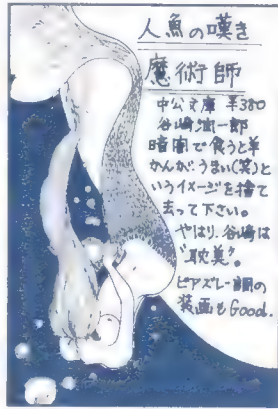 人魚の嘆き
魔術師
中公文庫 ¥380
谷崎潤一郎
暗闇で食うと羊
かんが.うまい(笑)と
いうイメージを捨て
去って下さい。
やはり、谷崎は
“耽美”。
ビアズレー調の
装画もGood.